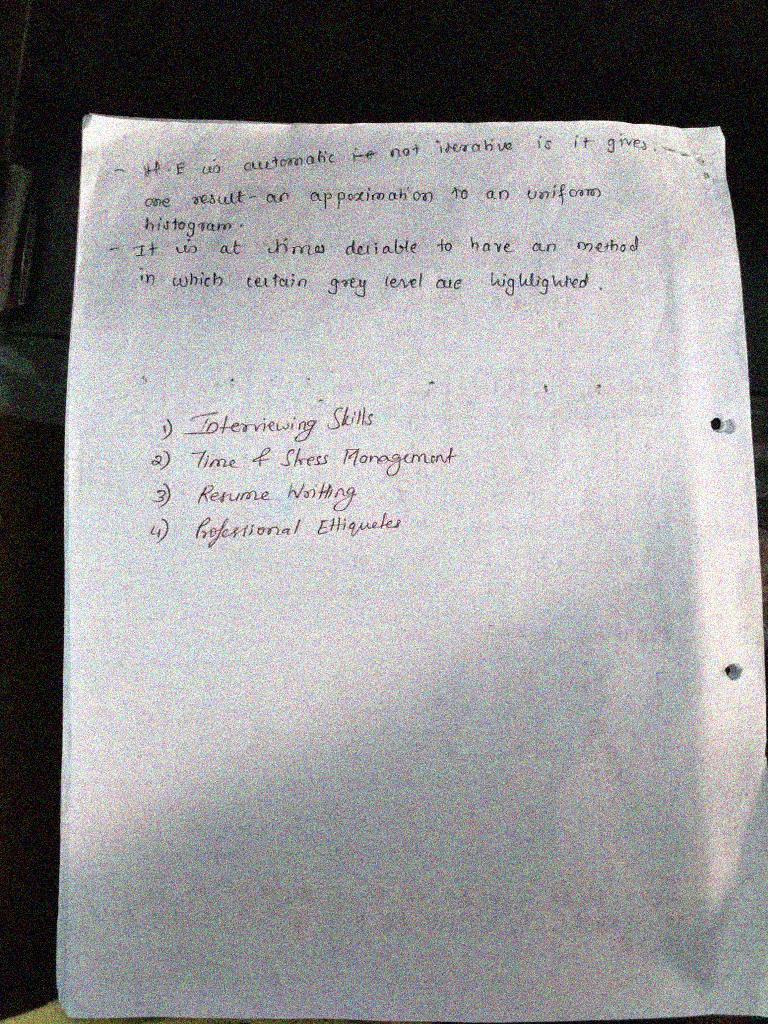 - H.E is automatic i.e not iterative is it gives
one result - an appoximation to an uniform
histogram.
- It is at times deliable to have an method
in which certain grey level are highlighted.
1) Interviewing Skills
2) Time & Stress Management
3) Resume Writting
4) Professional Ettiquetes